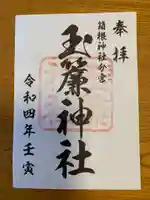 奉拝
箱根神社分霊
玉簾神社
令和四年壬寅